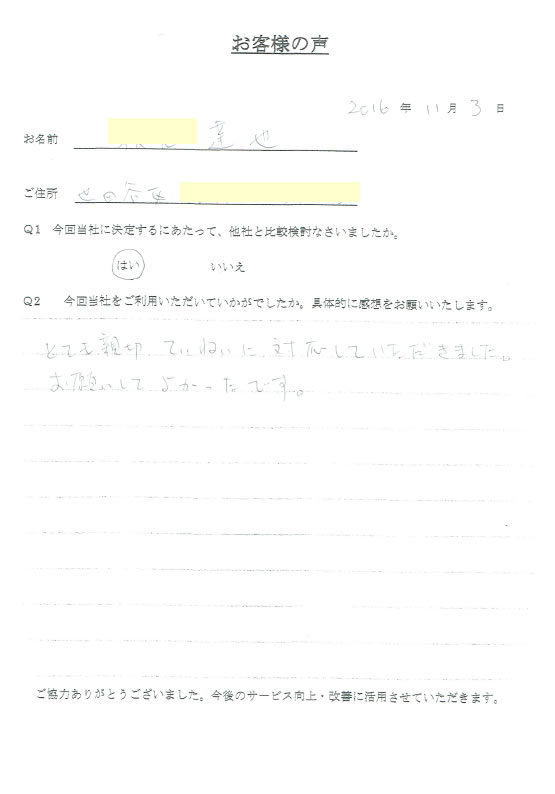 お客様の声
2016 年 11 月 3 日
お名前 達也
ご住所 世田谷区
Q1 今回当社に決定するにあたって、他社と比較検討なさいましたか。
はい いいえ
Q2 今回当社をご利用いただいていかがでしたか。具体的に感想をお願いいたします。
とても親切、ていねいに対応していただきました。
お願いしてよかったです。
ご協力ありがとうございました。今後のサービス向上・改善に活用させていただきます。